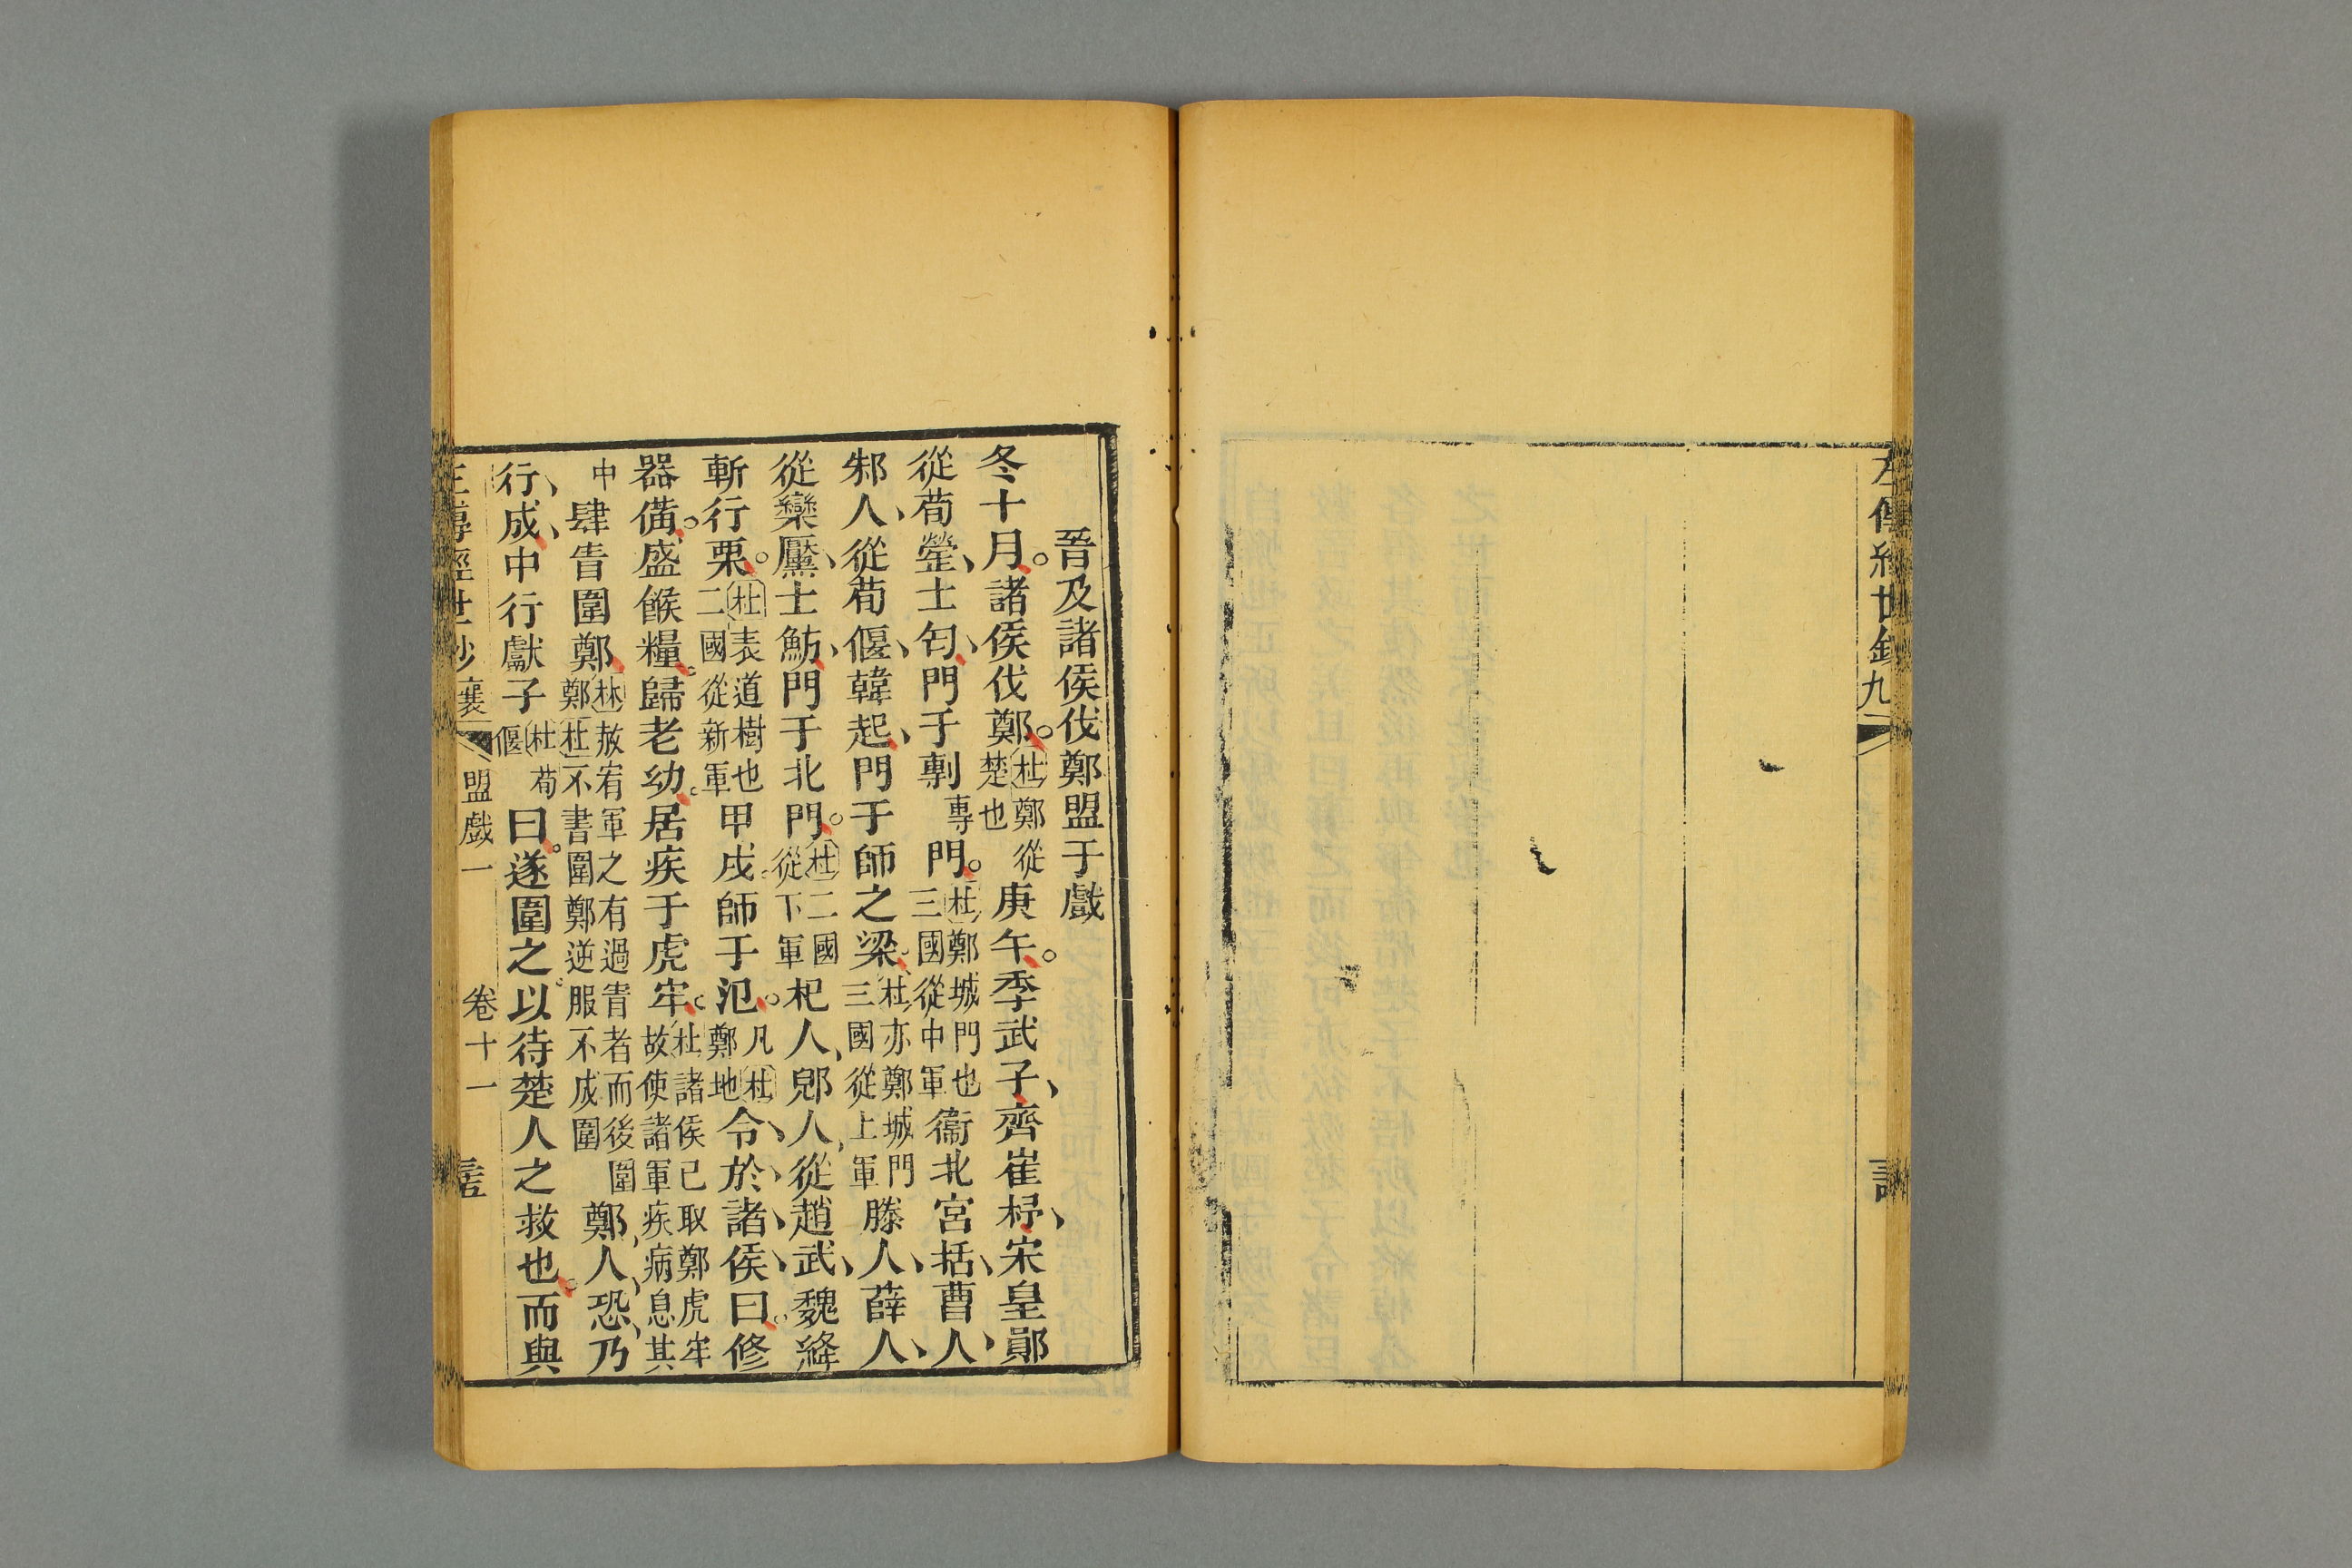 左傳經世鈔九
晉及諸侯伐鄭盟于戲
冬十月諸侯伐鄭杜鄭從楚也庚午季武子齊崔杼宋皇鄖
從荀罃士匄門于鄟專門杜鄭城門也三國從中軍衞北宮括曹人
邾人從荀偃韓起門于師之梁杜亦鄭城門三國從上軍滕人薛人
從欒黶士魴門于北門杜二國從下軍杞人郳人從趙武魏絳
斬行栗杜表道樹也二國從新軍甲戌師于氾凡杜鄭地令於諸侯曰修
器備盛餱糧歸老幼居疾于虎牢杜諸侯已取鄭虎牢故使諸軍疾病息其
中肆眚圍鄭林赦宥軍之有過眚者而後圍鄭杜不書圍鄭逆服不成圍鄭人恐乃
行成中行獻子杜荀偃曰遂圍之以待楚人之救也而與
左傳經世鈔 襄 盟戲一 卷十一